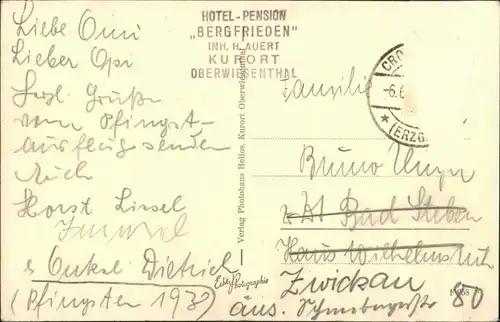 Liebe Omi
Lieber Opi
Herzl. Grüße
vom Pfingst-
ausflug senden
Euch
Horst Liesel
Onkel Dietrich
(Pfingsten 193
HOTEL-PENSION
"BERGFRIEDEN"
INH. H. AUERT
KURORT
OBERWIESENTHAL
Verlag Photohaus Helios, Kurort Oberwiesenthal
Echte Photographie
CRO
6.6
(ERZG
Familie
Bruno Unger
Bad Steben
Haus Wilhelmsruh
Zwickau
80